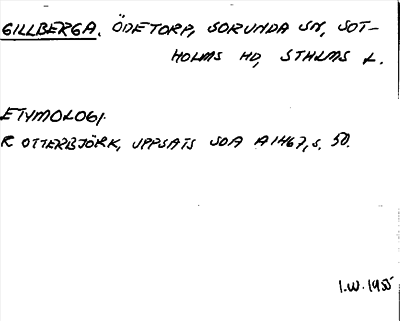 GILLBERGA. ÖDETORP, SORUNDA SN, SOT-
HOLMS HD, STHLMS L.
ETYMOLOGI.
R OTTERBJÖRK, UPPSATS SOA A1467, s. 50.
I.W. 1955